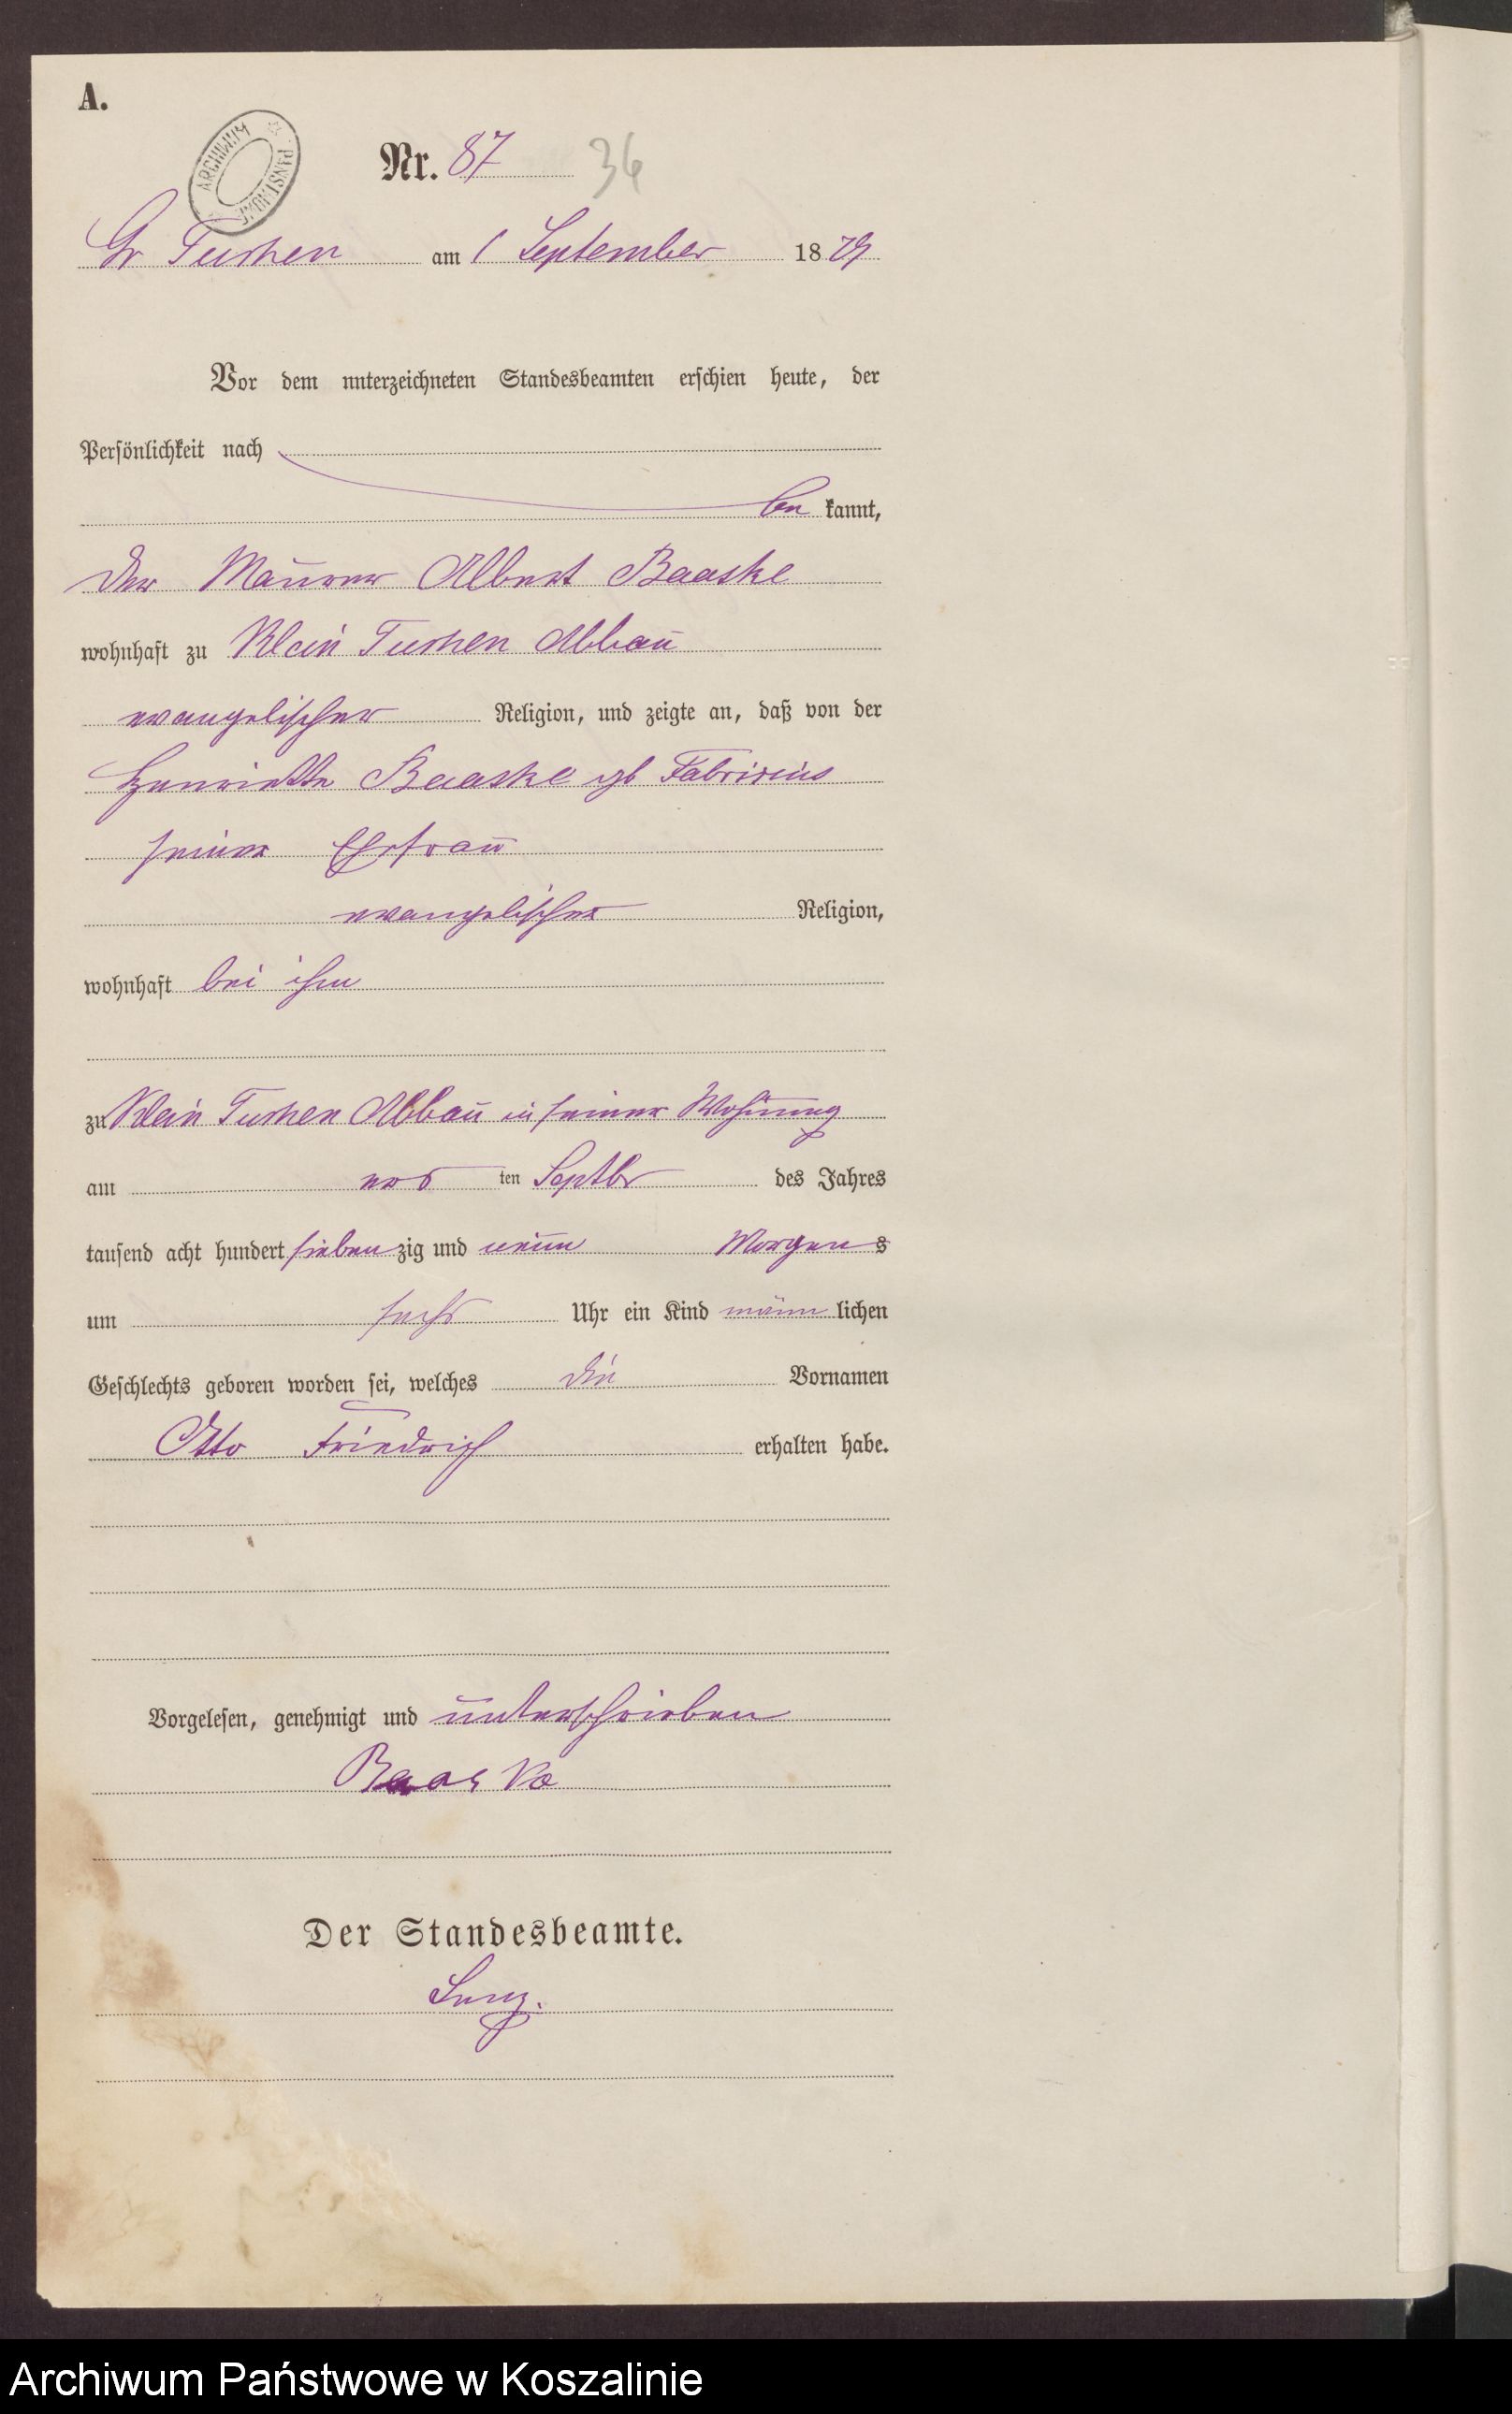 A.
ARCHIWUM PAŃSTWOWE
Nr. 87 36
Gr Tuchen am 1 September 1879
Vor dem unterzeichneten Standesbeamten erschien heute, der
Persönlichkeit nach
be kannt,
der Maurer Albert Baaske
wohnhaft zu Klein Tuchen Abbau
evangelischer Religion, und zeigte an, daß von der
Henriette Baaske gb Fabricius
seiner Ehefrau
evangelischer Religion,
wohnhaft bei ihm
zu Klein Tuchen Abbau in seiner Wohnung
am ers ten Septbr des Jahres
tausend acht hundert sieben zig und neun Morgens
um sechs Uhr ein Kind männlichen
Geschlechts geboren worden sei, welches die Vornamen
Otto Friedrich erhalten habe.
Vorgelesen, genehmigt und unterschrieben
Baaske
Der Standesbeamte.
Archiwum Państwowe w Koszalinie